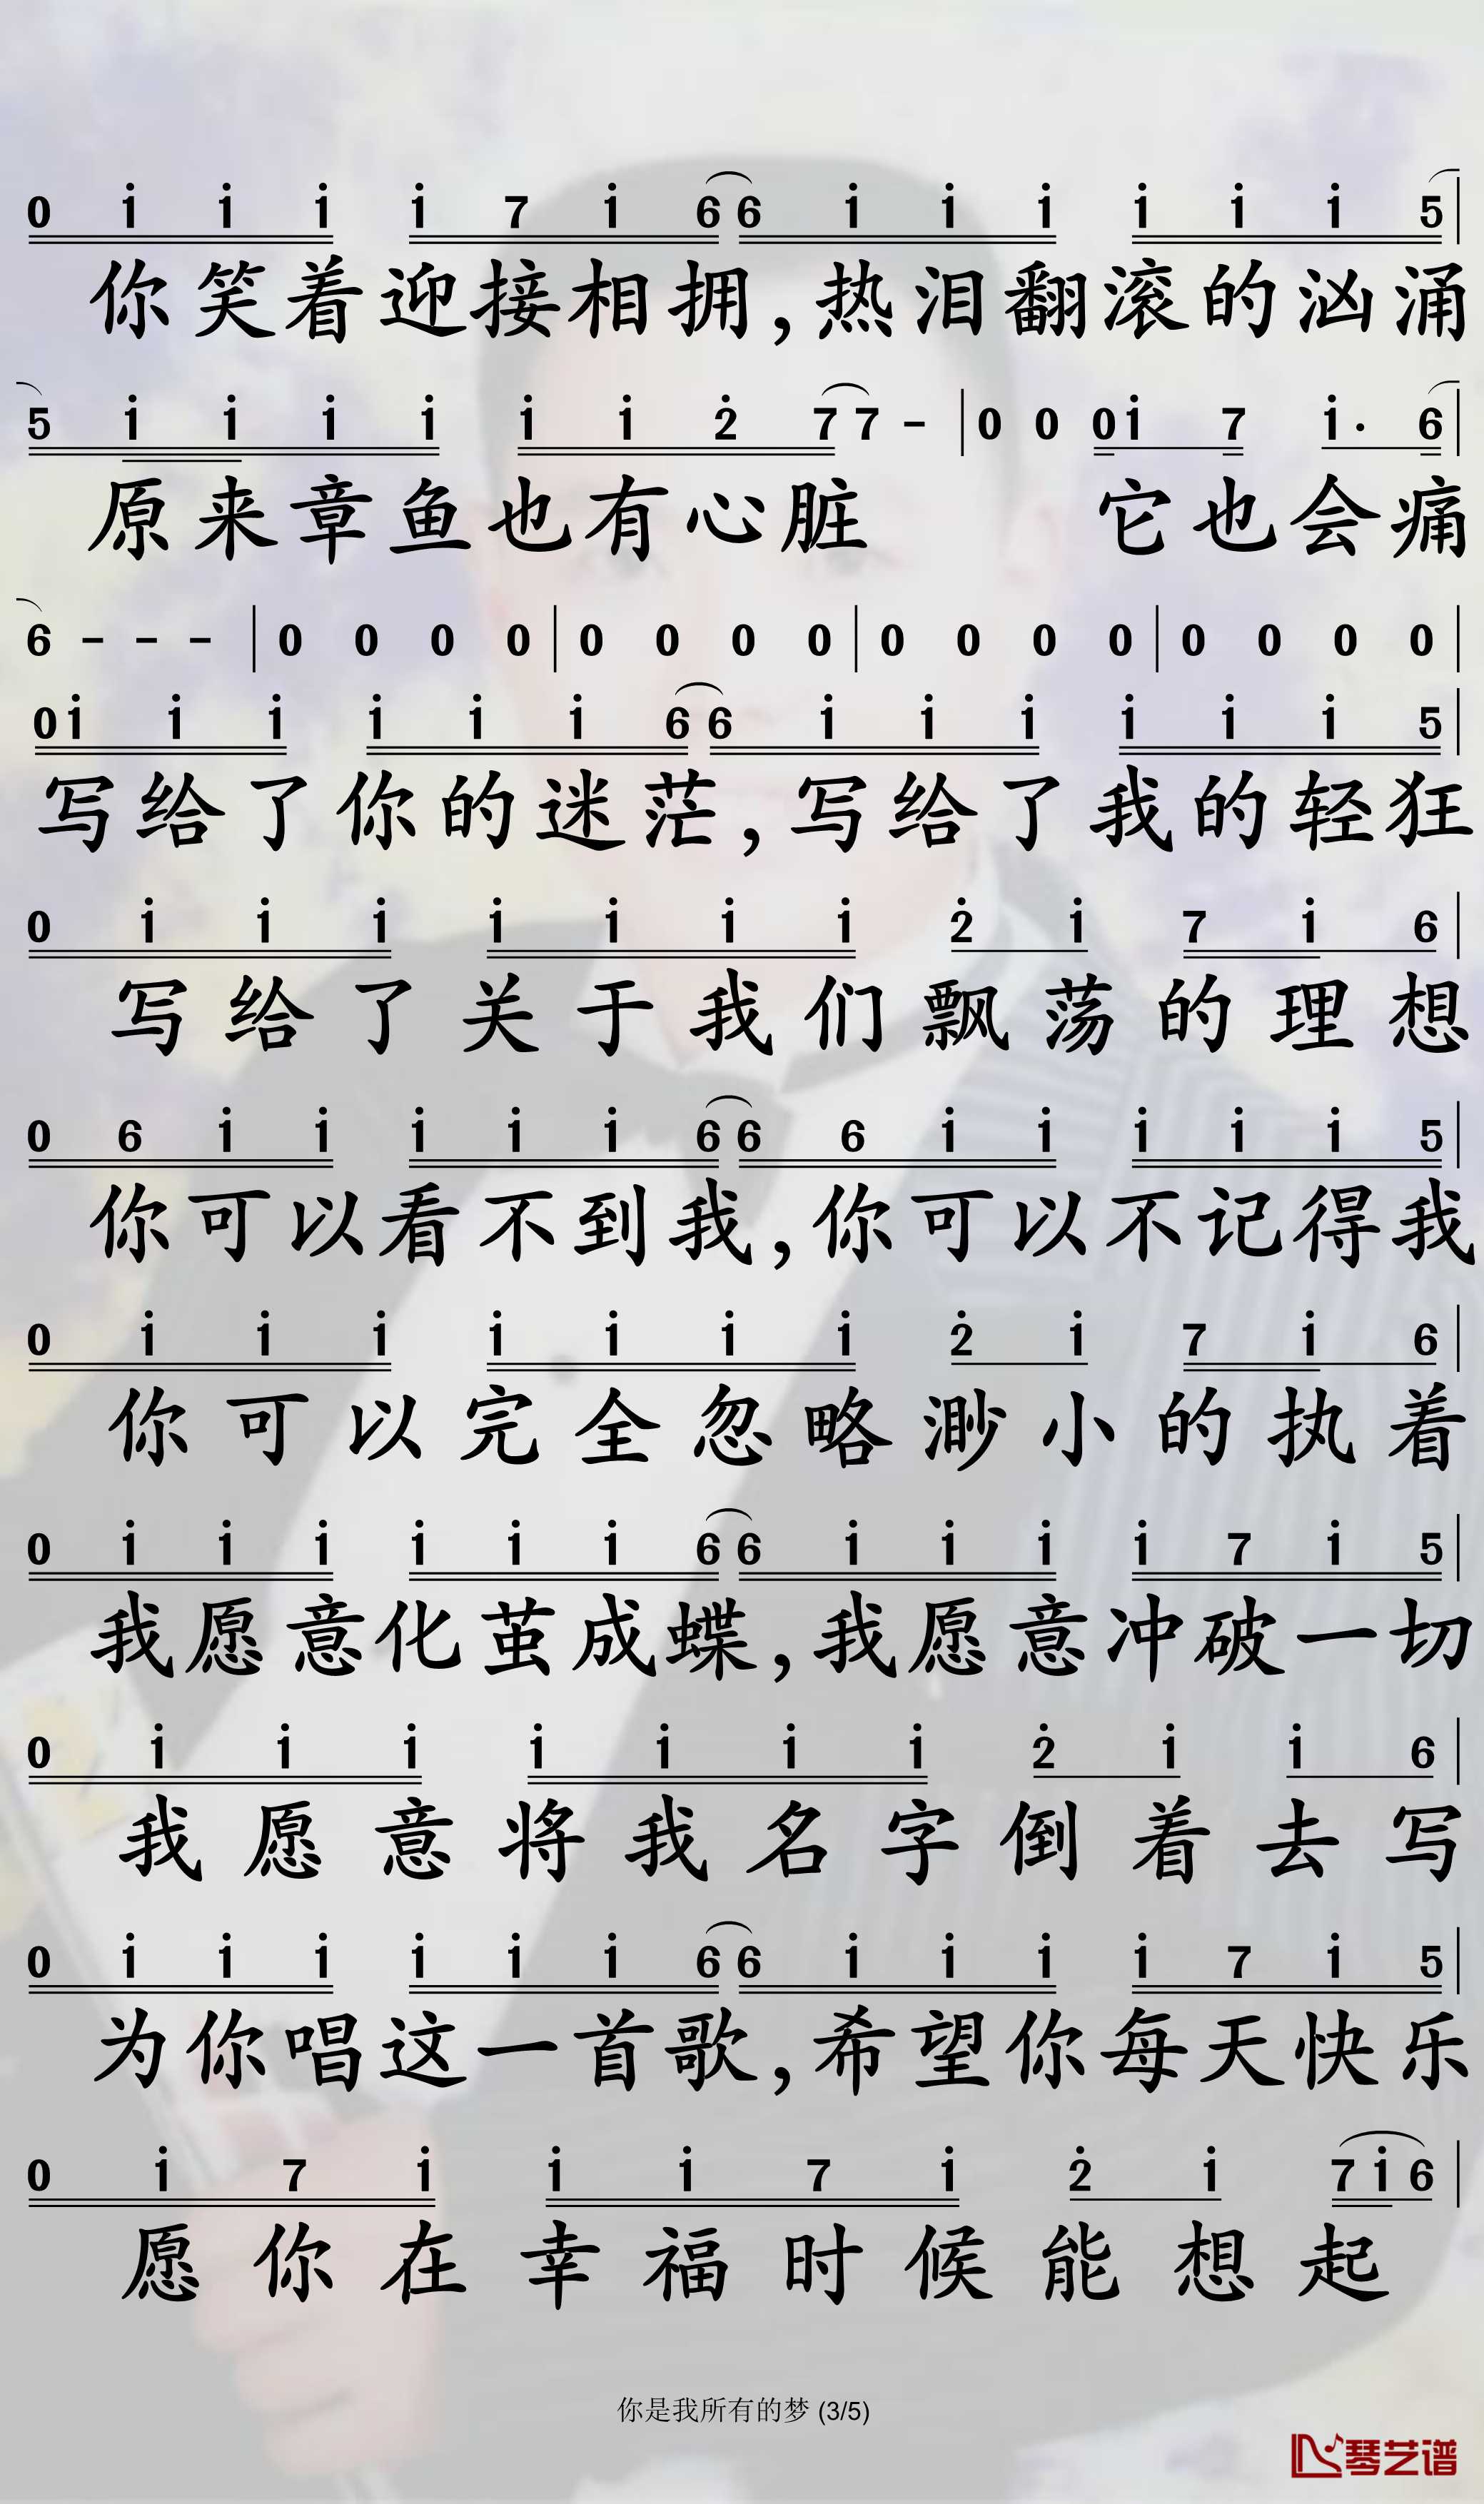 0 i i i i 7 i 6 6 i i i i i i 5
你笑着迎接相拥,热泪翻滚的汹涌
5 i i i i i i 2̇ 7 7 - | 0 0 0 i 7 i· 6
原来章鱼也有心脏 它也会痛
6 - - - | 0 0 0 0 | 0 0 0 0 | 0 0 0 0 | 0 0 0 0 |
0 i i i i i i 6 6 i i i i i i 5
写给了你的迷茫,写给了我的轻狂
0 i i i i i i i 2̇ i 7 i 6
写给了关于我们飘荡的理想
0 6 i i i i i 6 6 6 i i i i i 5
你可以看不到我,你可以不记得我
0 i i i i i i i 2̇ i 7 i 6
你可以完全忽略渺小的执着
0 i i i i i i 6 6 i i i i 7 i 5
我愿意化茧成蝶,我愿意冲破一切
0 i i i i i i i 2̇ i i 6
我愿意将我名字倒着去写
0 i i i i i i 6 6 i i i i 7 i 5
为你唱这一首歌,希望你每天快乐
0 i 7 i i i 7 i 2̇ i 7 i 6
愿你在幸福时候能想起
你是我所有的梦 (3/5)
琴艺谱